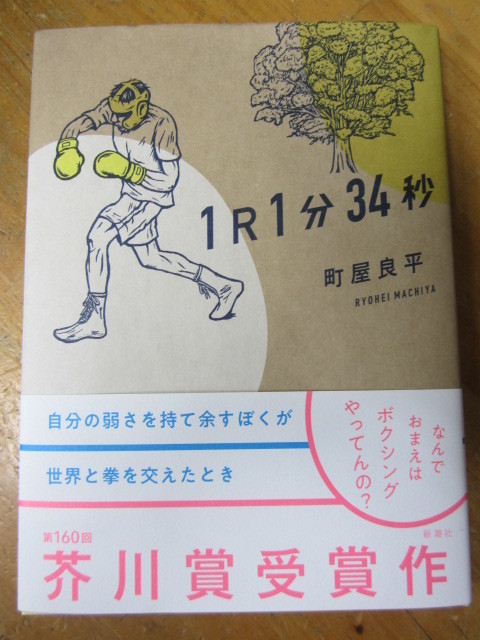 1R1分34秒
町屋良平
RYOHEI MACHIYA
なんで
おまえは
ボクシング
やってんの?
自分の弱さを持て余すぼくが
世界と拳を交えたとき
第160回
新潮社
芥川賞受賞作